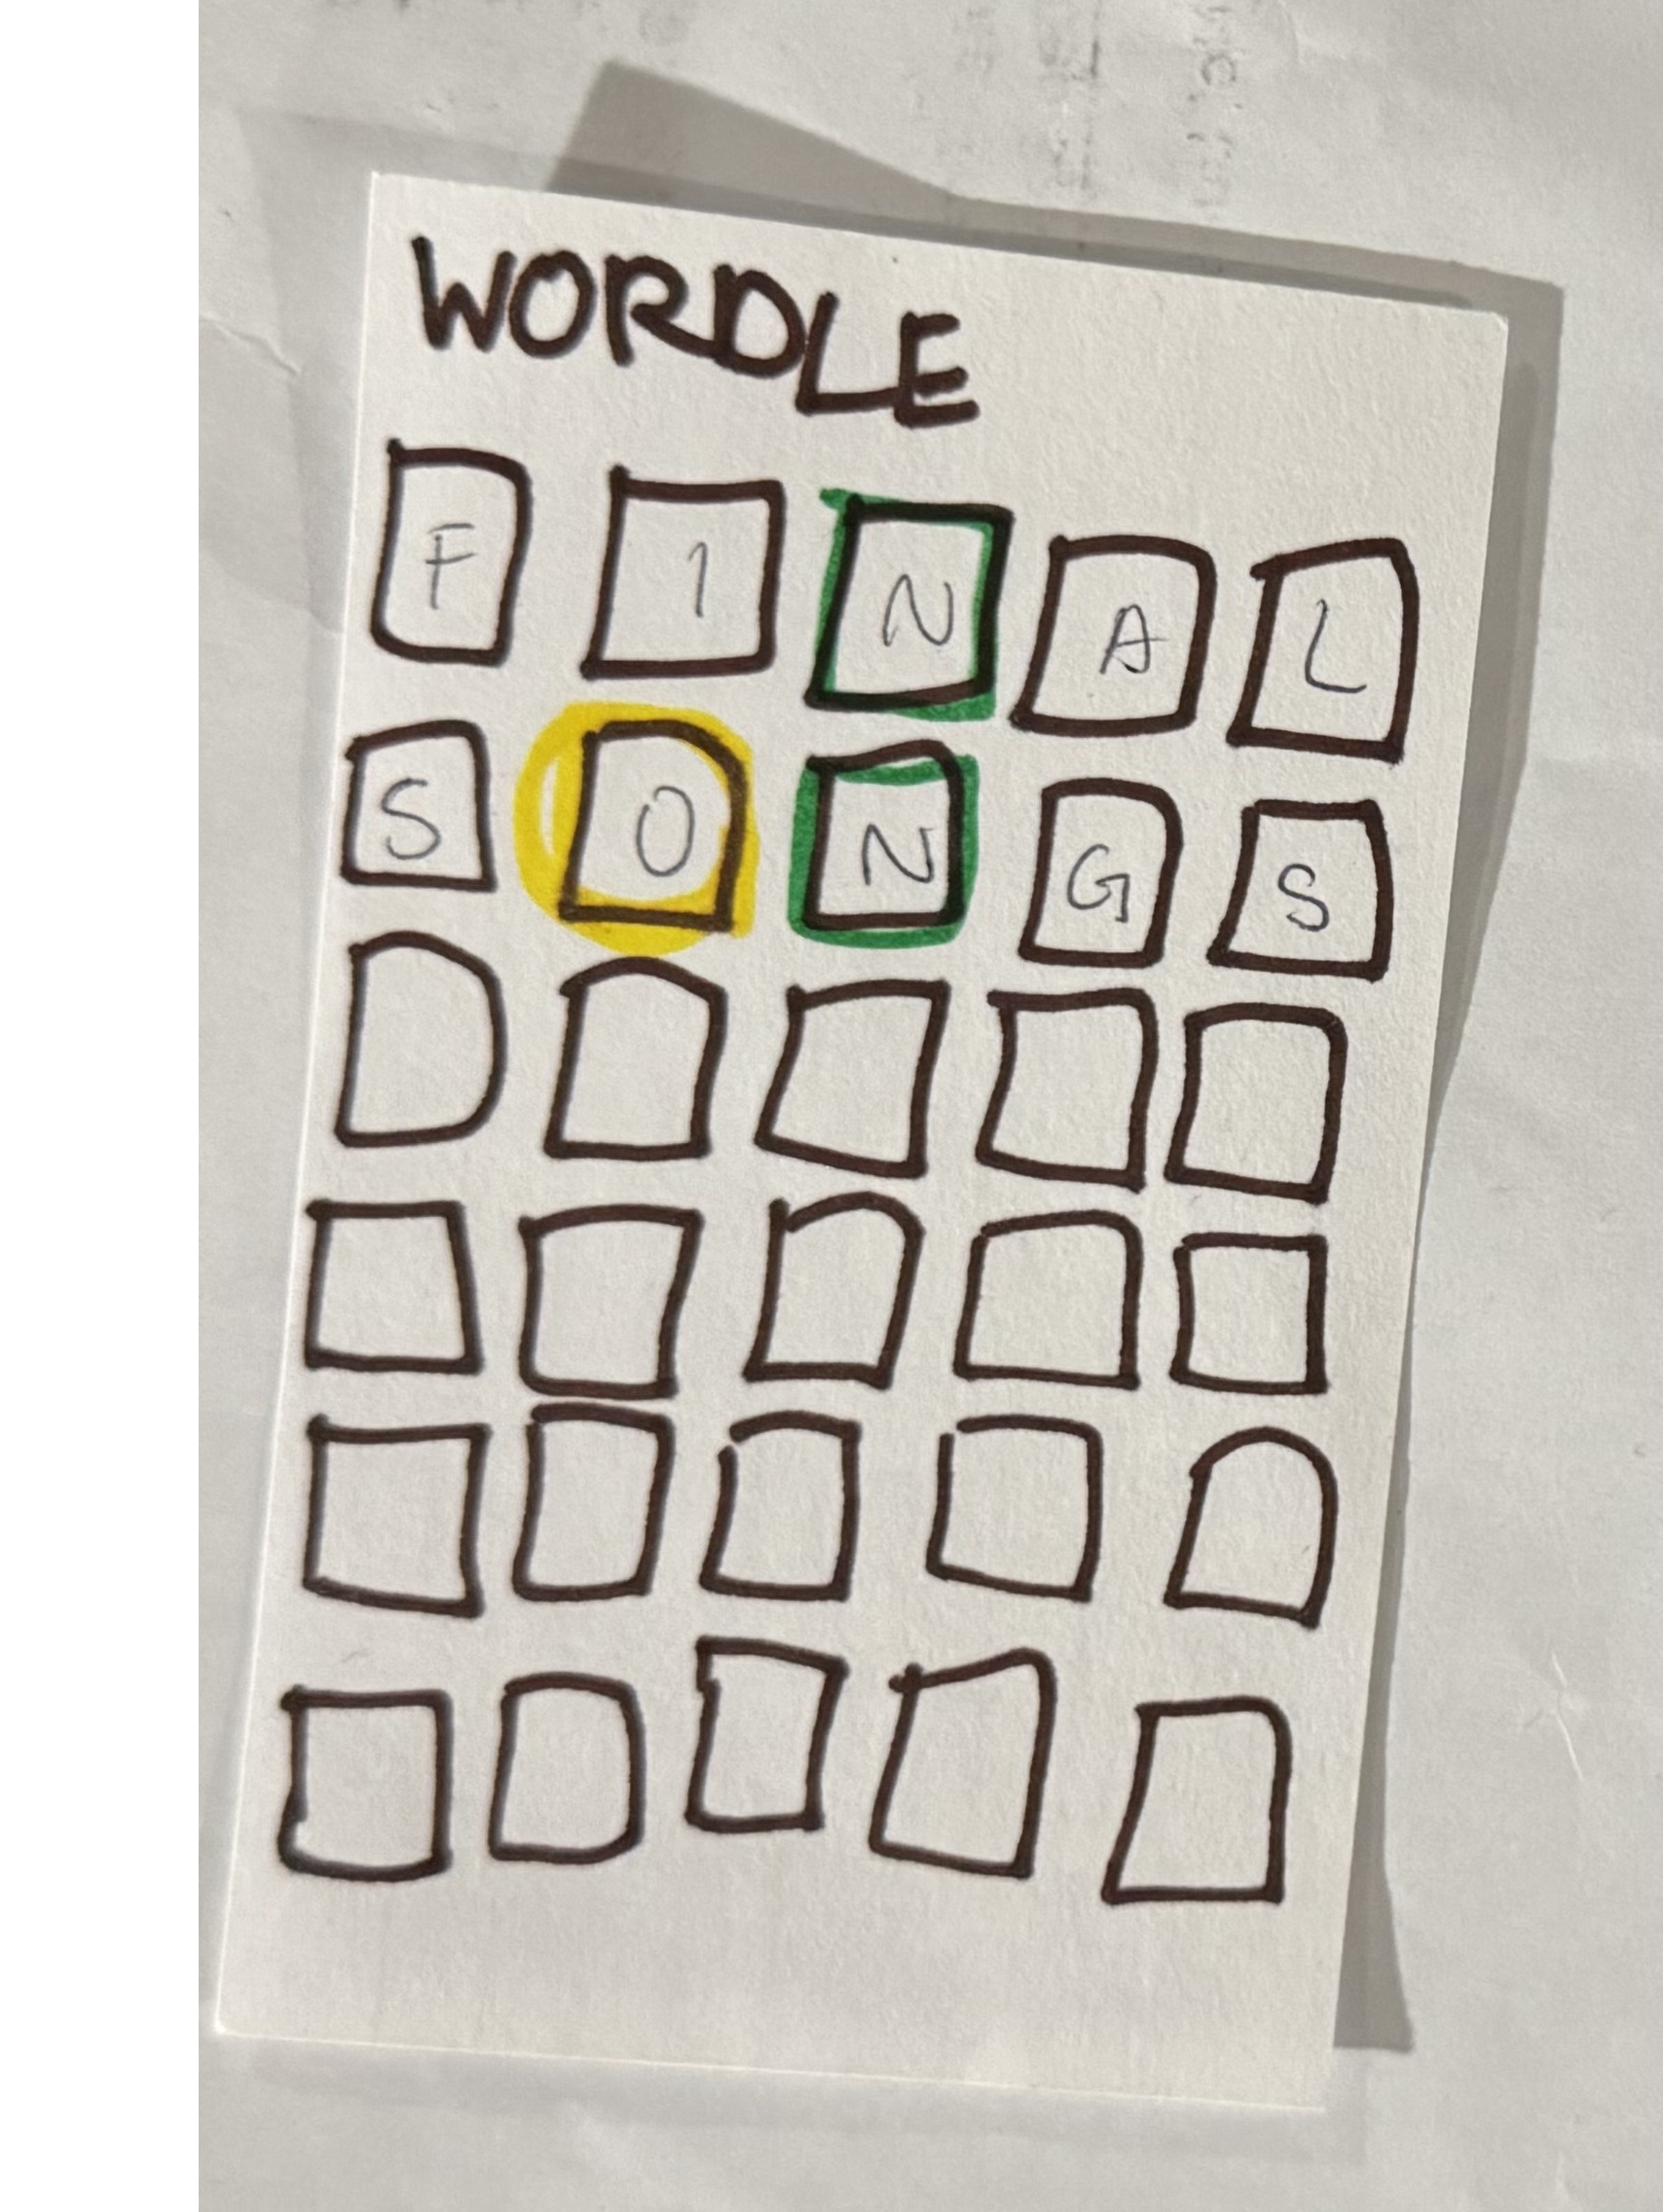 WORDLE
F I N A L
S O N G S